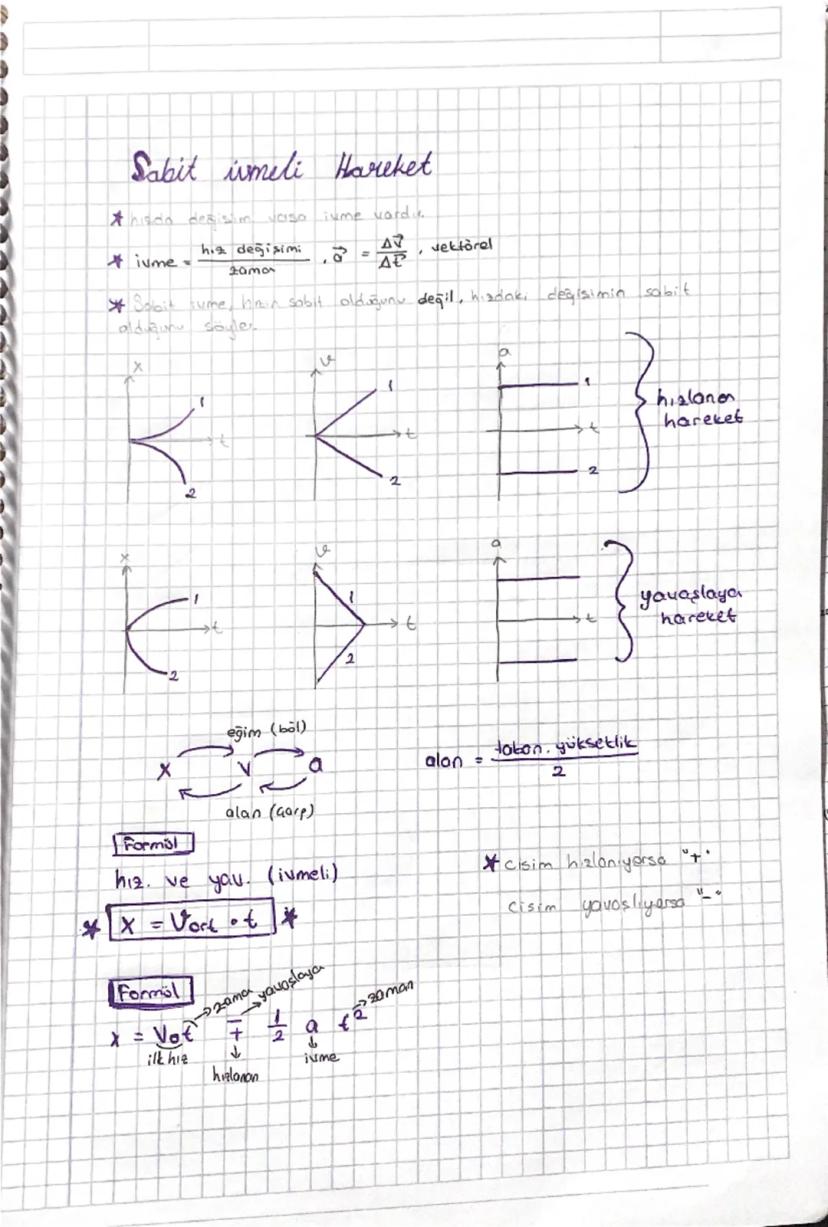 Sabit ivmeli Hareket
* hızda değişim varsa ivme vardır.
* ivme = hız değişimi / zaman , a⃗ = Δv⃗ / Δt⃗ , vektörel
* Sabit ivme, hızın sabit olduğunu değil, hızdaki değişimin sabit
olduğunu söyler.
x 1 2 t
v 1 2 t
a 1 2 t
hızlanan
hareket
x 1 2 t
v 1 2 t
a t
yavaşlayan
hareket
eğim (böl)
x v a
alan (çarp)
alan = taban . yükseklik / 2
Formül
hız. ve yav. (ivmeli)
* x = Vort . t *
* cisim hızlanıyorsa "+"
cisim yavaşlıyorsa "-"
Formül
zaman yavaşlayan zaman
x = V₀t ∓ 1/2 a t²
ilk hız hızlanan ivme